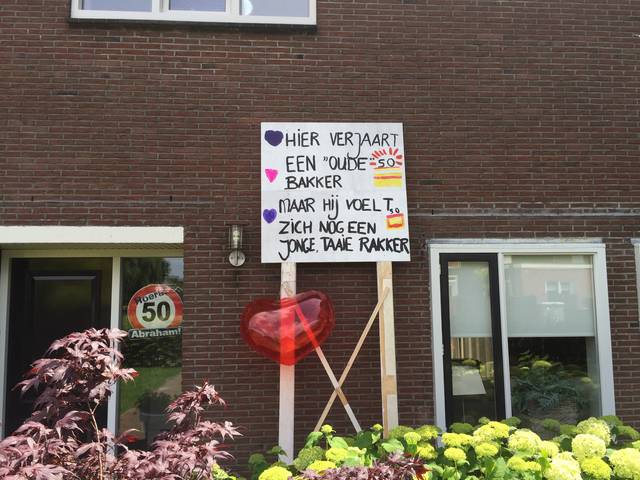 HIER VERJAART
EEN "OUDE" 50
BAKKER
MAAR HIJ VOELT 50
ZICH NOG EEN
JONGE, TAAIE RAKKER
Hoera
50
Abraham!